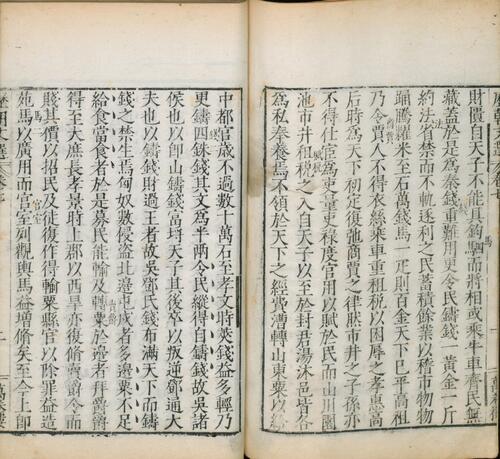 財匱自天子不能具鈞駟而將相或乘牛車齊民無
藏葢於是為秦錢重難用更令民鑄錢一黃金一斤
約法省禁而不軌逐利之民蓄積餘業以稽市物物
踊騰糶米至石萬錢馬一疋則百金天下巳平高祖
乃令賈人不得衣絲乘車重租稅以困辱之孝惠高
后時為天下初定復弛商賈之律然市井之子孫亦
不得仕宦為吏量吏祿度官用以賦於民而山川園
池市井租稅之入自天子以至於封君湯沐邑皆各
為私奉養焉不領於天下之經費漕轉山東粟以給
中都官歲不過數十萬石至孝文時莢錢益多輕乃
更鑄四銖錢其文為半兩令民縱得自鑄錢故吳諸
侯也以卽山鑄錢富埒天子其後卒以叛逆鄧通大
夫也以鑄錢財過王者故吳鄧氏錢布滿天下而鑄
錢之禁生焉匈奴數侵盜北邊屯戍者多邊粟不足
給食當食者於是募民能輸及轉粟於邊者拜爵爵
得至大庶長孝景時上郡以西旱亦復脩賣爵令而
賤其價以招民及徒復作得輸粟縣官以除罪益造
苑馬以廣用而宮室列觀輿馬益增脩矣至今上卽